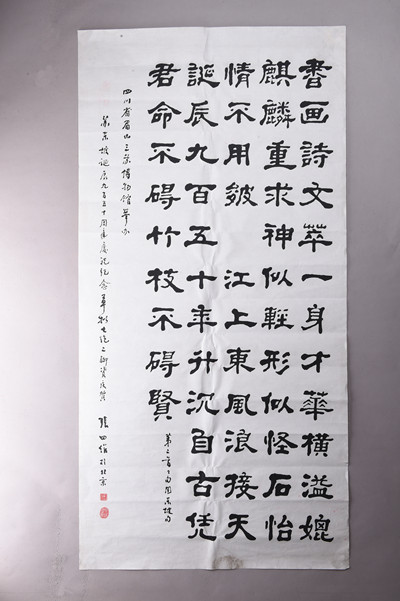 書画詩文萃一身才華横溢媲
麒麟重求神似輕形似怪石怡
情不用皴 江上東風浪接天
誕辰九百五十年升沉自古凭
君命不碍竹枝不碍賢
第二首句用东坡句
四川省眉山三蘇博物館举办
蘇东坡诞辰九百五十周年庆祝纪念草拟七绝二
於北京